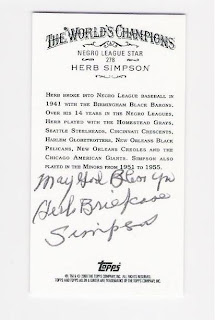 THE WORLD'S CHAMPIONS
NEGRO LEAGUE STAR
278
HERB SIMPSON
HERB BROKE INTO NEGRO LEAGUE BASEBALL IN
1941 WITH THE BIRMINGHAM BLACK BARONS.
OVER HIS 14 YEARS IN THE NEGRO LEAGUES,
HERB PLAYED WITH THE HOMESTEAD GRAYS,
SEATTLE STEELHEADS, CINCINNATI CRESCENTS,
HARLEM GLOBETROTTERS, NEW ORLEANS BLACK
PELICANS, NEW ORLEANS CREOLES AND THE
CHICAGO AMERICAN GIANTS. SIMPSON ALSO
PLAYED IN THE MINORS FROM 1951 TO 1955.
May God Bless You
Herb Briefcase
Simpson
Topps
® & © 2008 THE TOPPS COMPANY, INC. ALL RIGHTS RESERVED.
TOPPS AND ALLEN & GINTER ARE TRADEMARKS OF THE TOPPS COMPANY, INC.